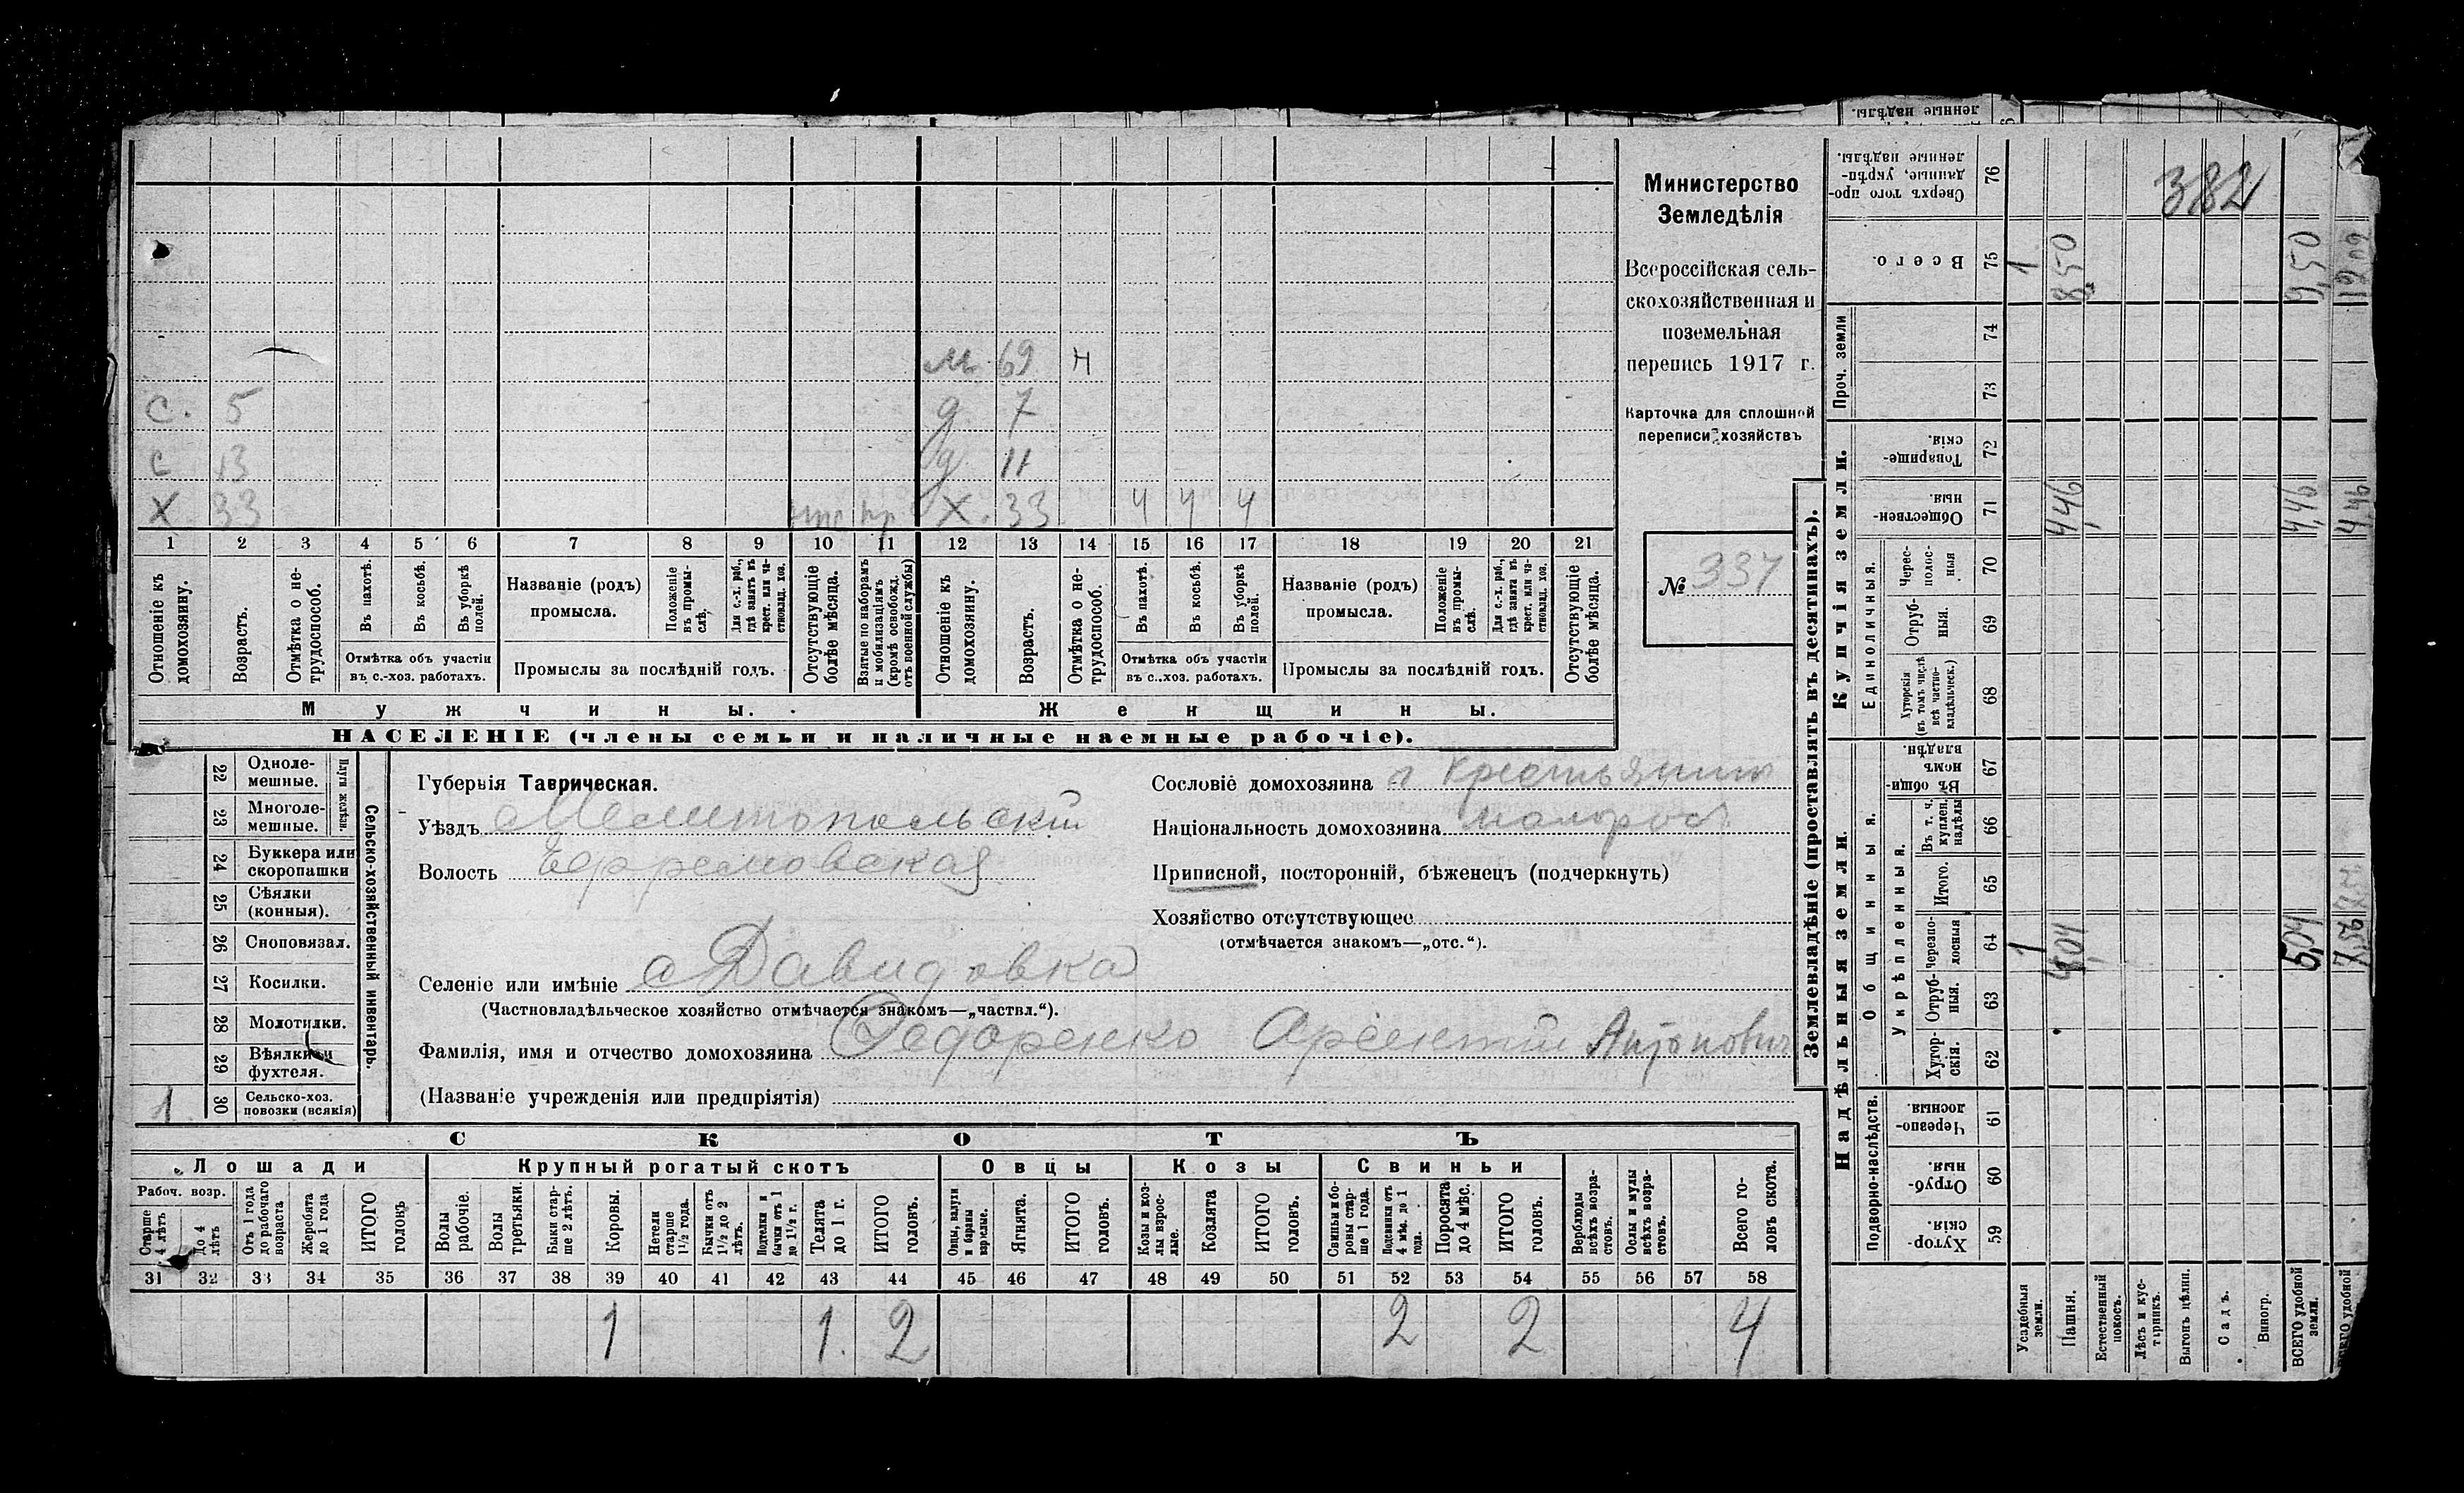 м. 69 н
с. 5 д 7
с 13 д 11
Х 33 отс Х. 33 ч ч ч
1 2 3 4 5 6 7 8 9 10 11 12 13 14 15 16 17 18 19 20 21
Отношеніе къ домохозяину.
Возрастъ.
Отмѣтка о не-трудоспособ.
Въ пахотѣ.
Въ косьбѣ.
Въ уборкѣ полей.
Отмѣтка объ участіи
въ с.-хоз. работахъ.
Названіе (родъ)
промысла.
Положеніе въ промы-слѣ.
Для с.-х. раб., гдѣ занятъ въ крест. или ча-стновлад. хоз.
Промыслы за послѣдній годъ.
Отсутствующіе болѣе мѣсяца.
Взятые по наборамъ и мобилизаціямъ (кромѣ освобожд. отъ военной службы)
Отношеніе къ домохозяину.
Возрастъ.
Отмѣтка о не-трудоспособ.
Въ пахотѣ.
Въ косьбѣ.
Въ уборкѣ полей.
Отмѣтка объ участіи
въ с..хоз. работахъ.
Названіе (родъ)
промысла.
Положеніе въ промы-слѣ.
Для с.-х. раб., гдѣ занята въ крест. или ча-стновлад. хоз.
Промыслы за послѣдній годъ.
Отсутствующіе болѣе мѣсяца.
Мужчины. Женщины.
НАСЕЛЕНІЕ (члены семьи и наличные наемные рабочіе).
Министерство
Земледѣлія
Всероссійская сель-
скохозяйственная и
поземельная
перепись 1917 г.
Карточка для сплошной
переписи хозяйствъ
№ 337
Сельско-хозяйственный инвентарь.
Плуги желѣзн.
22 Одноле-
мешные.
23 Многоле-
мешные.
24 Буккера или
скоропашки
25 Сѣялки
(конныя).
26 Сноповязал.
27 Косилки.
28 Молотилки.
29 Вѣялки и
фухтеля.
1 30 Сельско-хоз.
повозки (всякія)
Губернія Таврическая.
Уѣздъ Мелитопольскій
Волость Ефремовская
Сословіе домохозяина крестьянинъ
Національность домохозяина малоросъ
Приписной, посторонній, бѣженецъ (подчеркнуть)
Хозяйство отсутствующее
(отмѣчается знакомъ—„отс.“).
Селеніе или имѣніе с Давидовка
(Частновладѣльческое хозяйство отмѣчается знакомъ—„частвл.“).
Фамилія, имя и отчество домохозяина Федоренко Арсентій Антонович
(Названіе учрежденія или предпріятія)
СКОТЪ
Лошади Крупный рогатый скотъ Овцы Козы Свиньи
Рабоч. возр.
Старше 4 лѣтъ
До 4 лѣтъ
Отъ 1 года до рабочаго возраста
Жеребята до 1 года
ИТОГО головъ
Волы рабочіе.
Волы третьяки.
Быки стар-ше 2 лѣтъ.
Коровы.
Нетели старше 1½ года.
Бычки отъ 1½ до 2 лѣтъ.
Подтелки и бычки отъ 1 до 1½ г.
Телята до 1 г.
ИТОГО головъ.
Овцы, валухи и бараны взрослые.
Ягнята.
ИТОГО головъ.
Козы и коз-лы взрос-лые.
Козлята
ИТОГО головъ.
Свиньи и бо-ровы стар-ше 1 года.
Подсвинки отъ 4 мѣс. до 1 года.
Поросята до 4 мѣс.
ИТОГО головъ.
Верблюды всѣхъ возра-стовъ.
Ослы и мулы всѣхъ возра-стовъ.
Всего го-ловъ скота.
31 32 33 34 35 36 37 38 39 40 41 42 43 44 45 46 47 48 49 50 51 52 53 54 55 56 57 58
1 1. 2 2 2 4
Землевладѣніе (проставлять въ десятинахъ).
Купчія земли.
Надѣльныя земли.
ленные надѣлы.
Сверхъ того про-данные, укрѣп-ленные надѣлы. 76
382
Всего. 75 1 8,50 9,50
Проч. земли 74
73
Товарище-скія. 72
Обществен-ныя. 71 4,46 4,46 4,46
Единоличныя.
Черес-полос-ныя 70
Отруб-ныя. 69
Хуторскія (въ томъ числѣ всѣ частно-владѣльческ.) 68
Общинныя.
Въ общи-номъ владѣн. 67
Укрѣпленныя.
Въ т. ч. куплен. надѣлы 66
Итого. 65
Черезпо-лосныя 64 1 4,04 5,04
Отруб-ныя. 63
Хутор-скія. 62
Подворно-наслѣдств.
Черезпо-лосныя. 61
Отруб-ныя. 60
Хутор-скія. 59
Усадебныя земли.
Пашня.
Естественный покосъ.
Лѣсъ и кус-тарникъ.
Выгонъ цѣлин.
Садъ.
Виногр.
ВСЕГО удобной земли.